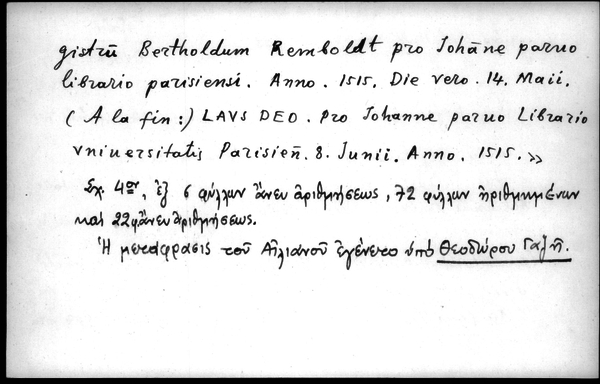 gistrū Bertholdum Remboldt pro Johāne paruo
librario parisiensi. Anno. 1515. Die vero. 14. Maii.
(A la fin:) LAVS DEO. Pro Johanne paruo Librario
vniuersitatis Parisieñ. 8. Junii. Anno. 1515. »
Σχ. 4ον, ἐξ 6 φύλλων ἄνευ ἀριθμήσεως, 72 φύλλων ἠριθμημένων
καὶ 22 φ. ἄνευ ἀριθμήσεως.
Ἡ μετάφρασις τοῦ Αἰλιανοῦ ἐγένετο ὑπό Θεοδώρου Γαζῆ.